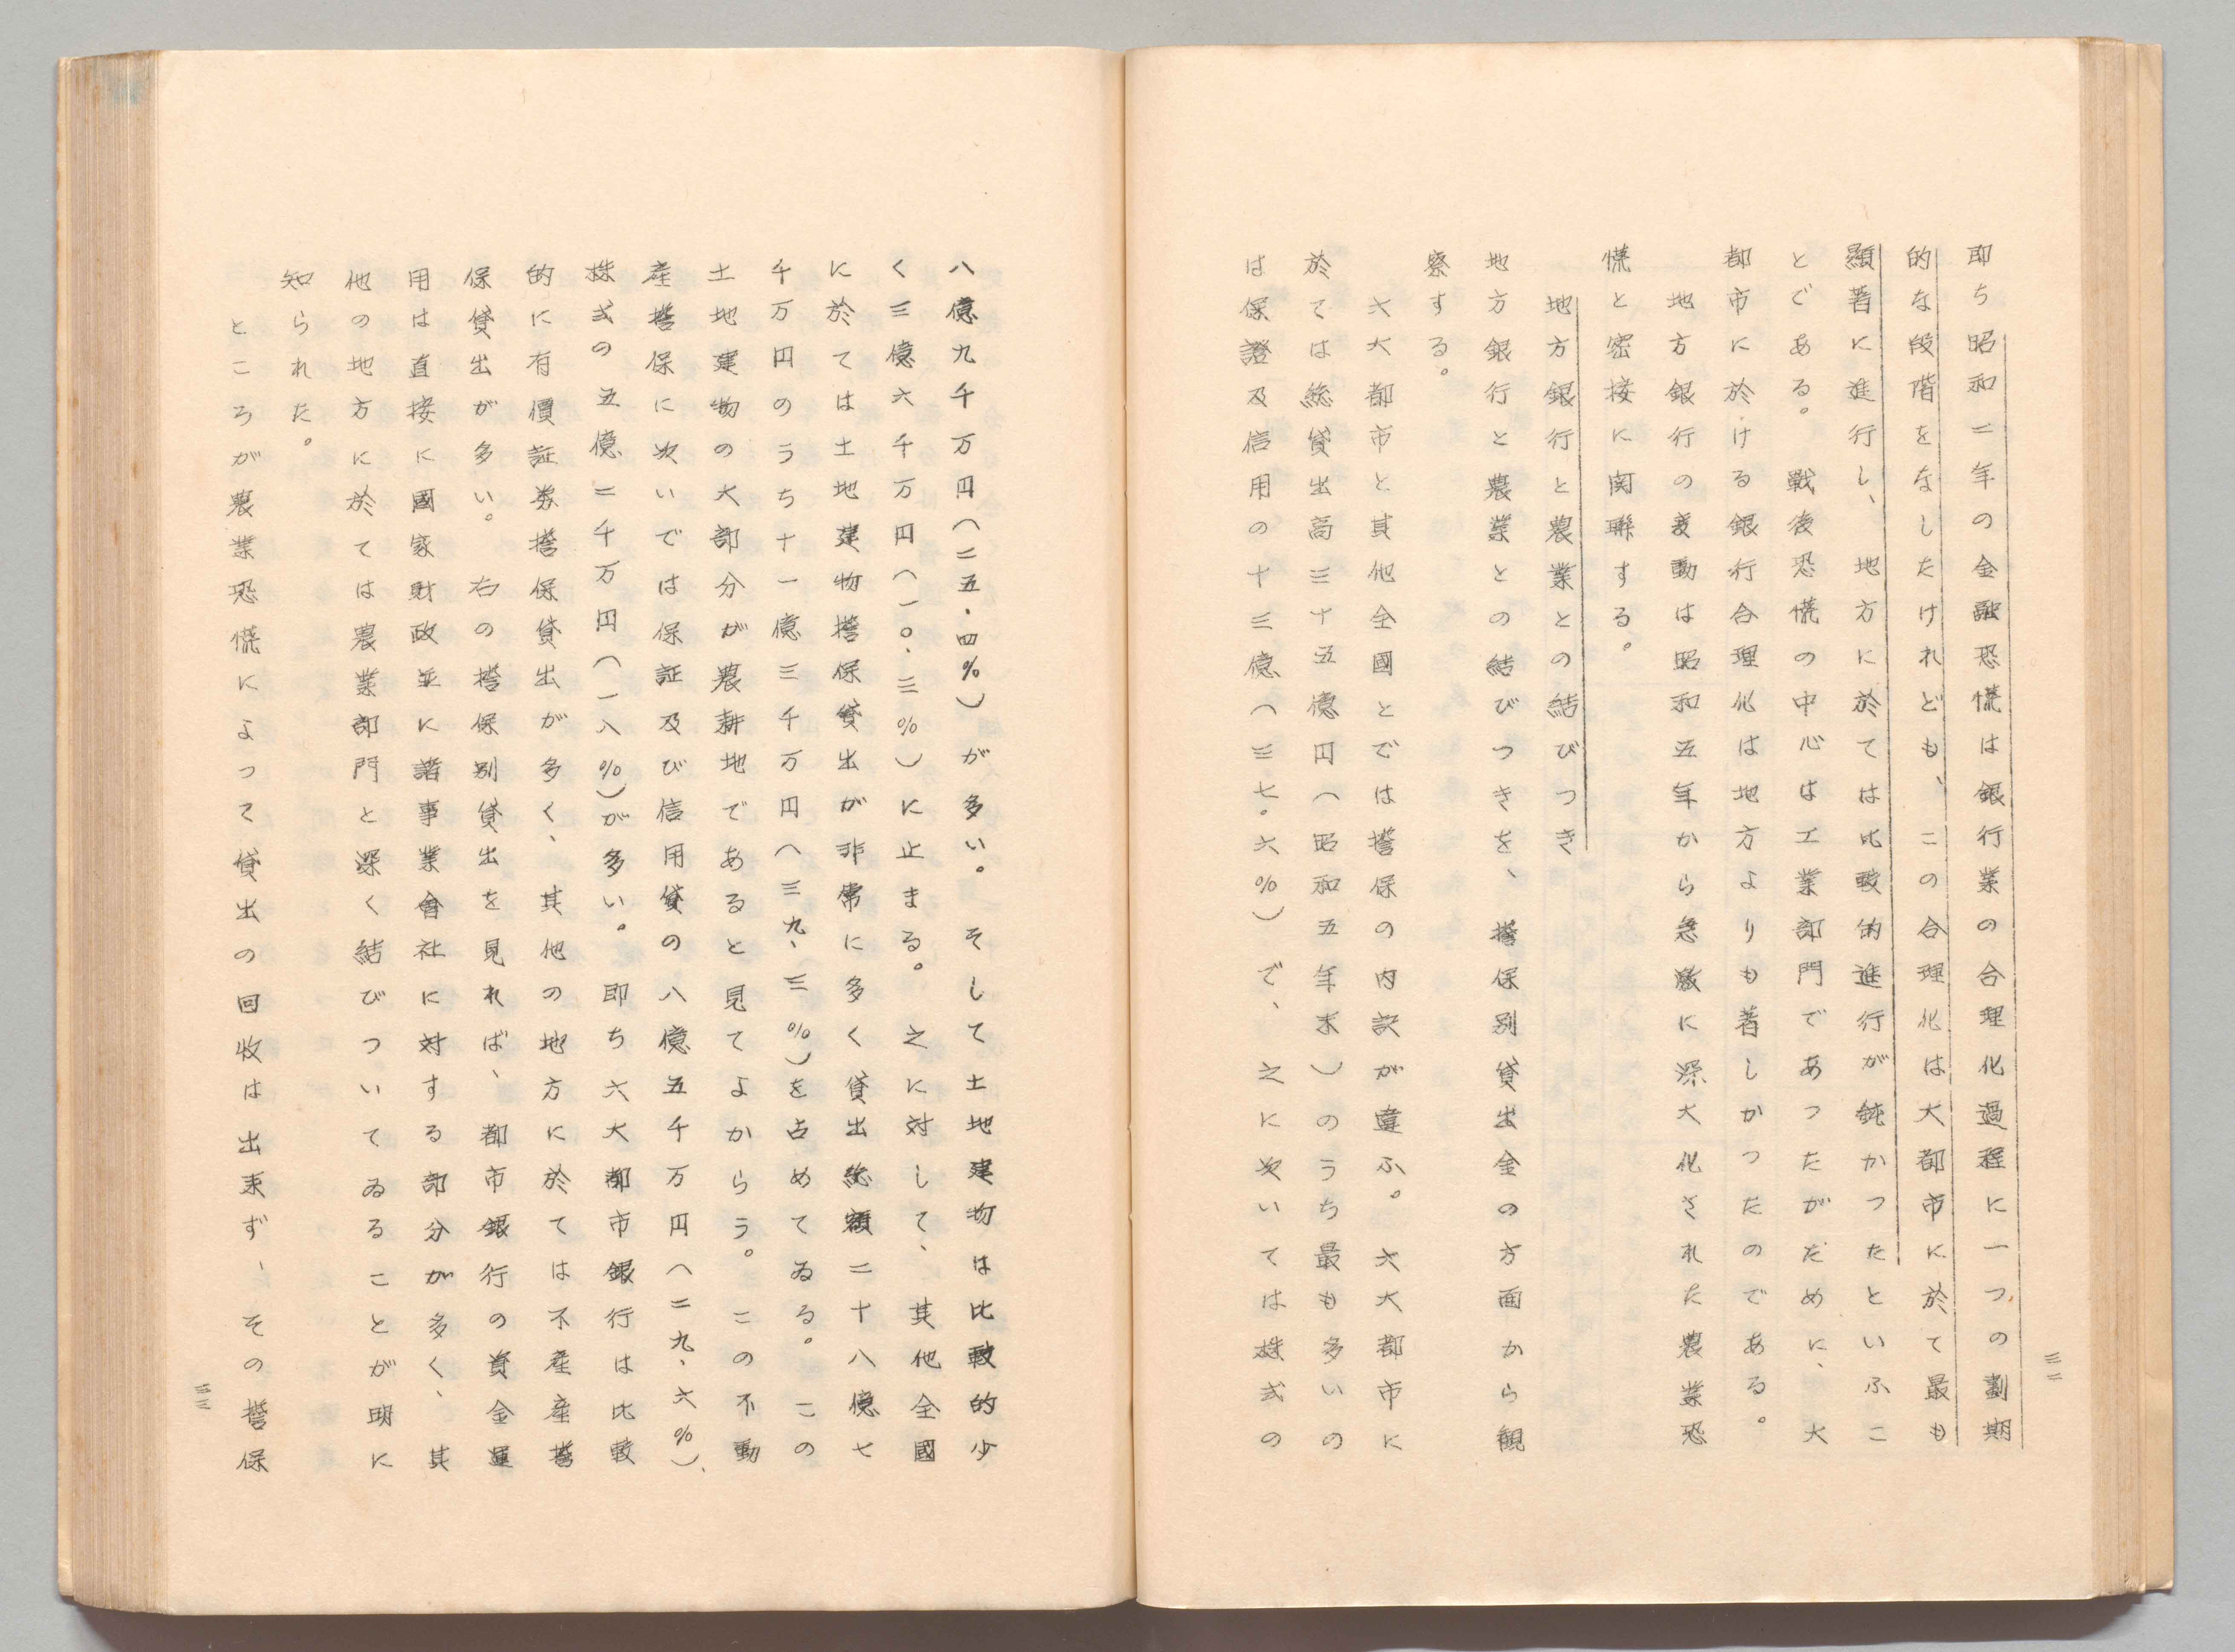 即ち昭和二年の金融恐慌は銀行業の合理化過程に一つの劃期
的な段階をなしたけれども、この合理化は大都市に於て最も
顯著に進行し、地方に於ては比較的進行が鈍かつたといふこ
とである。戰後恐慌の中心は工業部門であつたがだめに、大
都市に於ける銀行合理化は地方よりも著しかつたのである。
地方銀行の変動は昭和五年から急激に深大化された農業恐
慌と密接に関聯する。
地方銀行と農業との結びつき
地方銀行と農業との結びつきを、擔保別貸出金の方面から観
察する。
六大都市と其他全國とでは擔保の内訳が違ふ。六大都市に
於ては総貸出高三十五億円(昭和五年末)のうち最も多いの
は保證及信用の十三億(三七。六%)で、之に次いては株式の
三二
八億九千万円(二五・四%)が多い。そして土地建物は比較的少
く三億六千万円(一〇、三%)に止まる。之に対して、其他全國
に於ては土地建物擔保貸出が非常に多く貸出総額二十八億七
千万円のうち十一億三千万円(三九、三%)を占めてゐる。この
土地建物の大部分が農耕地であると見てよからう。この不動
産擔保に次いでは保証及び信用貸の八億五千万円(二九、六%)、
株式の五億二千万円(一八%)が多い。即ち六大都市銀行は比較
的に有價証券擔保貸出が多く、其他の地方に於ては不産産擔
保貸出が多い。右の擔保別貸出を見れば、都市銀行の資金運
用は直接に國家財政並に諸事業會社に対する部分が多く、其
他の地方に於ては農業部門と深く結びついてゐることが明に
知られた。
ところが農業恐慌によつて貸出の回收は出来ず、その擔保
三三